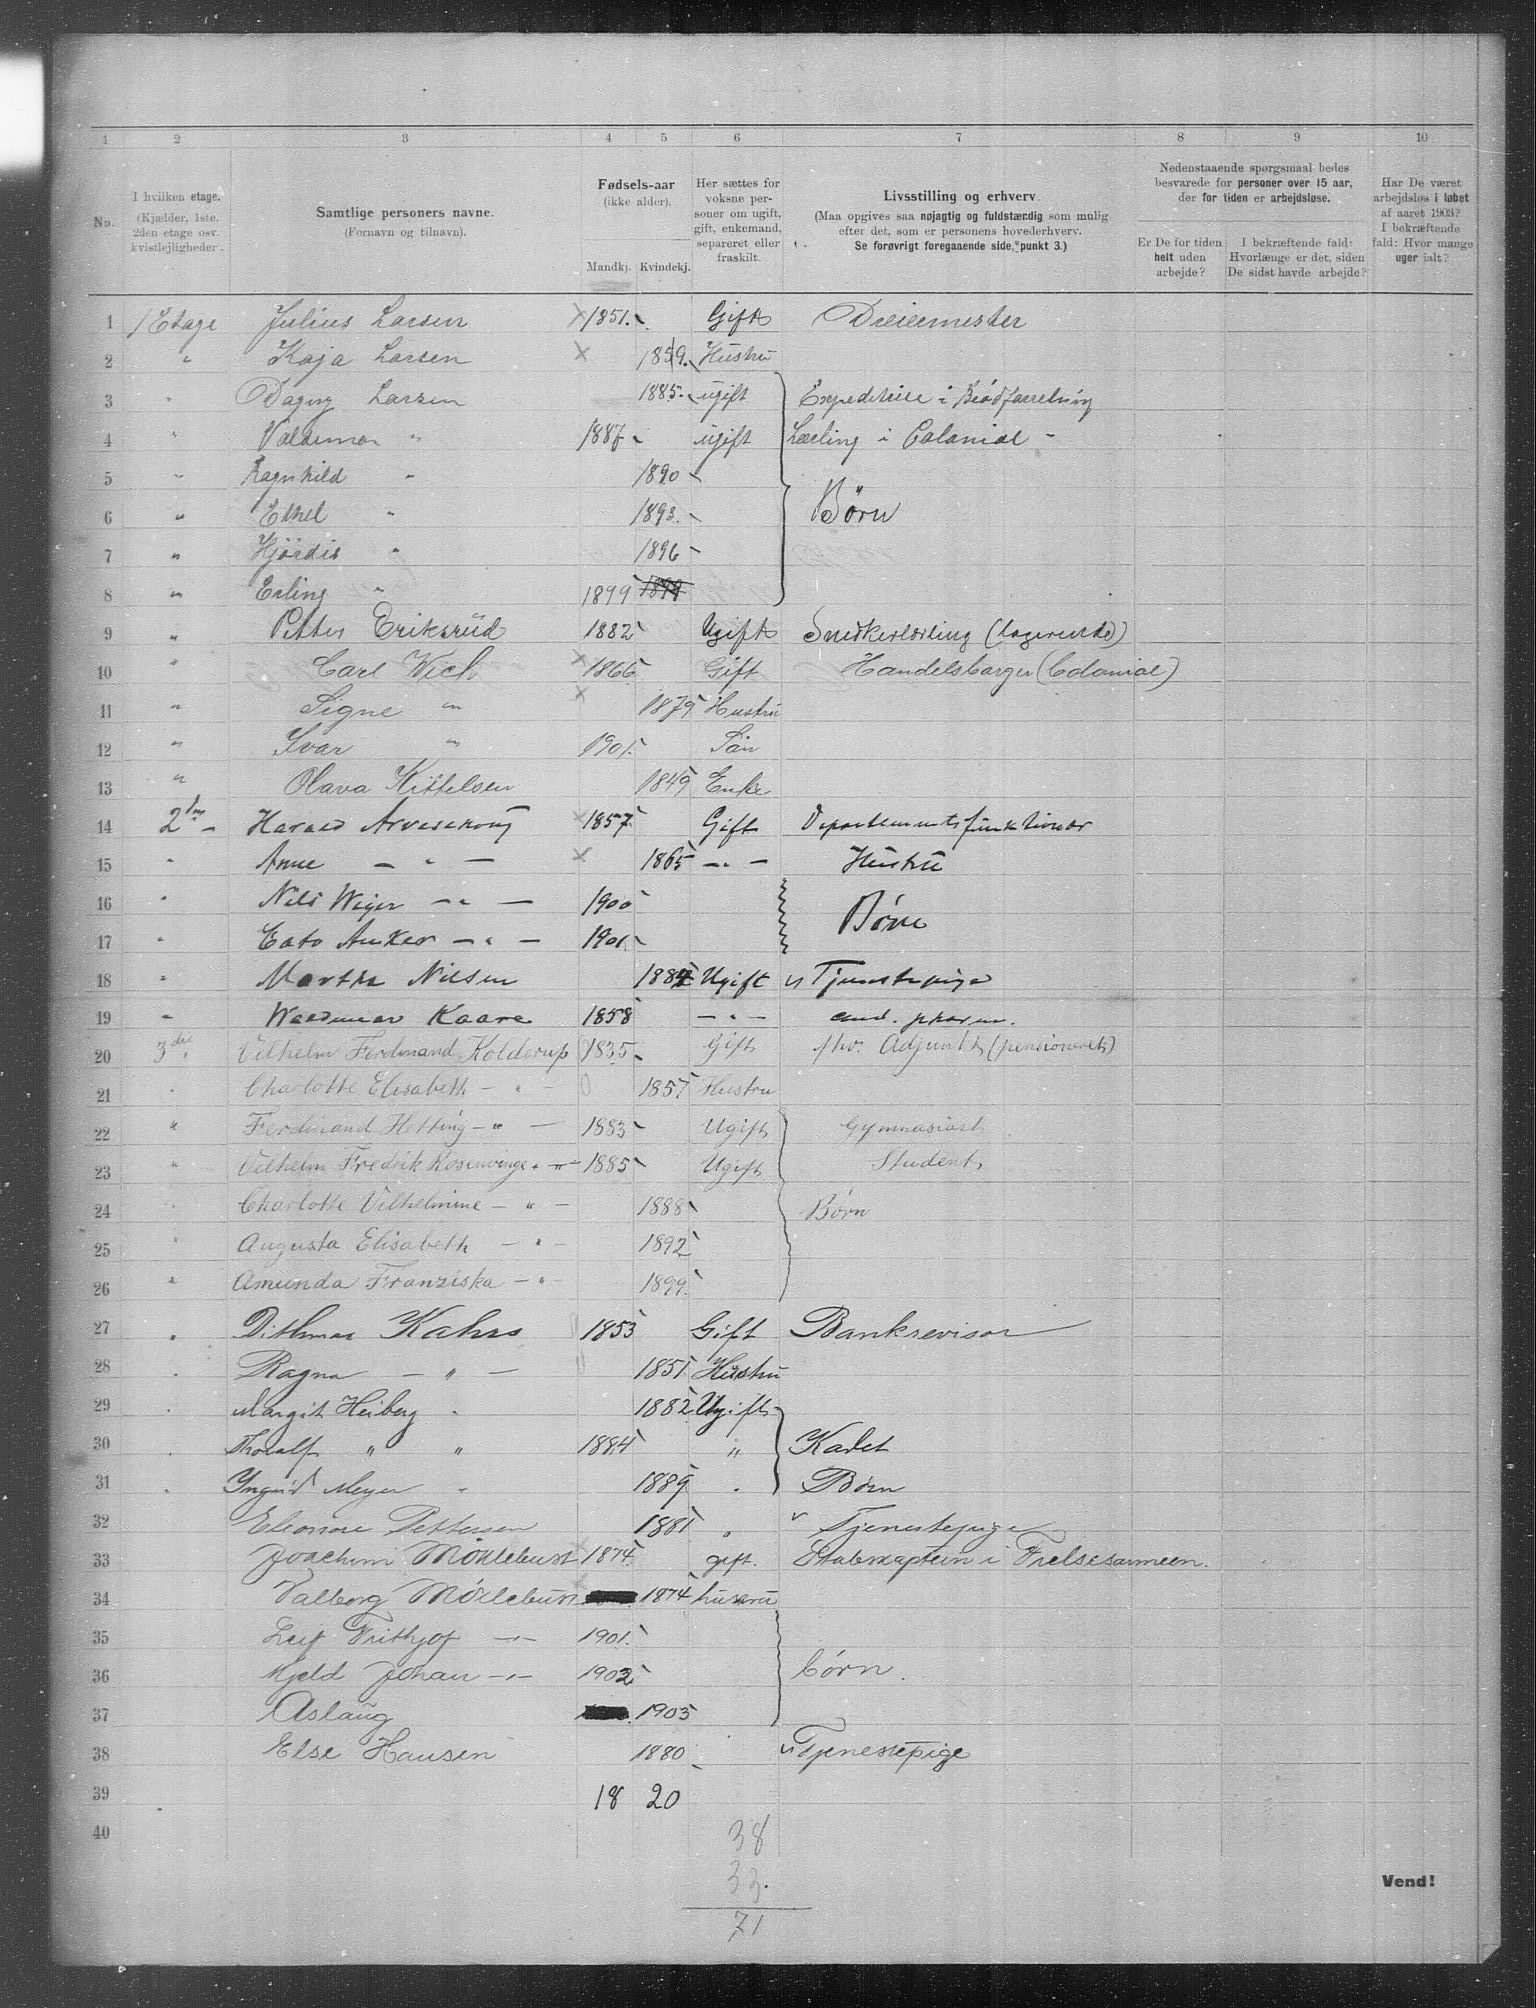 1 2 3 4 5 6 7 8 9 10
No.
I hvilken etage.
(Kjælder, 1ste, 2den etage osv. kvistlejligheder).
Samtlige personers navne.
(Fornavn og tilnavn).
Fødsels-aar
(ikke alder).
Mandkj. Kvindekj.
Her sættes for voksne personer om ugift, gift, enkemand, separeret eller fraskilt.
Livsstilling og erhverv.
(Maa opgives saa nøjagtig og fuldstændig som mulig efter det, som er personens hovederhverv.
Se forøvrigt foregaaende side, punkt 3.)
Nedenstaaende spørgsmaal bedes besvarede for personer over 15 aar, der for tiden er arbejdsløse.
Er De for tiden helt uden arbejde?
I bekræftende fald: Hvorlænge er det, siden De sidst havde arbejde?
Har De været arbejdsløs i løbet af aaret 1903? I bekræftende fald: Hvor mange uger ialt?
1 1 Etage Julius Larsen 1851. Gift Dreiemester
2 " Kaja Larsen 1859. Hustru
3 " Dagny Larsen 1885. ugift Expeditrice i Brødforretning
4 " Valdemar " 1887 ugift Lærling i Colonial -
5 " Ragnhild " 1890
6 " Ethel " 1893. Børn
7 " Hjørdis " 1896
8 " Erling " 1899 1899
9 " Petter Eriksrud 1882 Ugift Snedkerlærling (logerende)
10 " Carl Wich 1866 Gift Handelsborger (Colonial)
11 " Signe " 1879 Hustru
12 " Ivar " 1901. Søn
13 " Olava Kittelsen 1849 Enke
14 2 Harald 1857. Gift Departementsfunktionær
15 " Anne — " — 1865 — " — Hustru
16 " Nils — " — 1900 Børn
17 " Cato Anker — " — 1901.
18 " Martha Nilsen 1884 Ugift Tjenestepige
19 " Waldemar Kaare 1858 — " — cand. pharm.
20 3die Vilhelm Ferdinand Kolderup 1835 Gift fhv. Adjunkt (pensioneret)
21 " Charlotte Elisabeth — " — 1857 Hustru
22 " Ferdinand Hetting — " — 1883 Ugift Gymnasiast
23 " Vilhelm Fredrik Rosenvinge — " — 1885 Ugift Student
24 " Charlotte Vilhelmine — " — 1888 Børn
25 " Augusta Elisabeth — " — 1892
26 " Amunda Franziska — " — 1899.
27 " Dithmar Kahrs 1853 Gift Bankrevisor
28 " Ragna — " — 1851 Hustru
29 " Margit Heiberg " 1882 Ugift
30 " Thoralf " " 1884 " Kadet
31 " Yngrid Meyer " 1889 " Børn
32 Eleonore Pettersen 1881 " Tjenestepige
33 Joachim Møklebust 1874. gift. Stabskaptein i Frelsesarmeen.
34 Valborg Møklebust 1874 hustru
35 Leif Frithjof — " — 1901.
36 Johan — " — 1902 børn.
37 Aslaug 1903
38 Else Hansen 1880 Tjenestepige
39 18 20
40 38
33.
71
Vend!